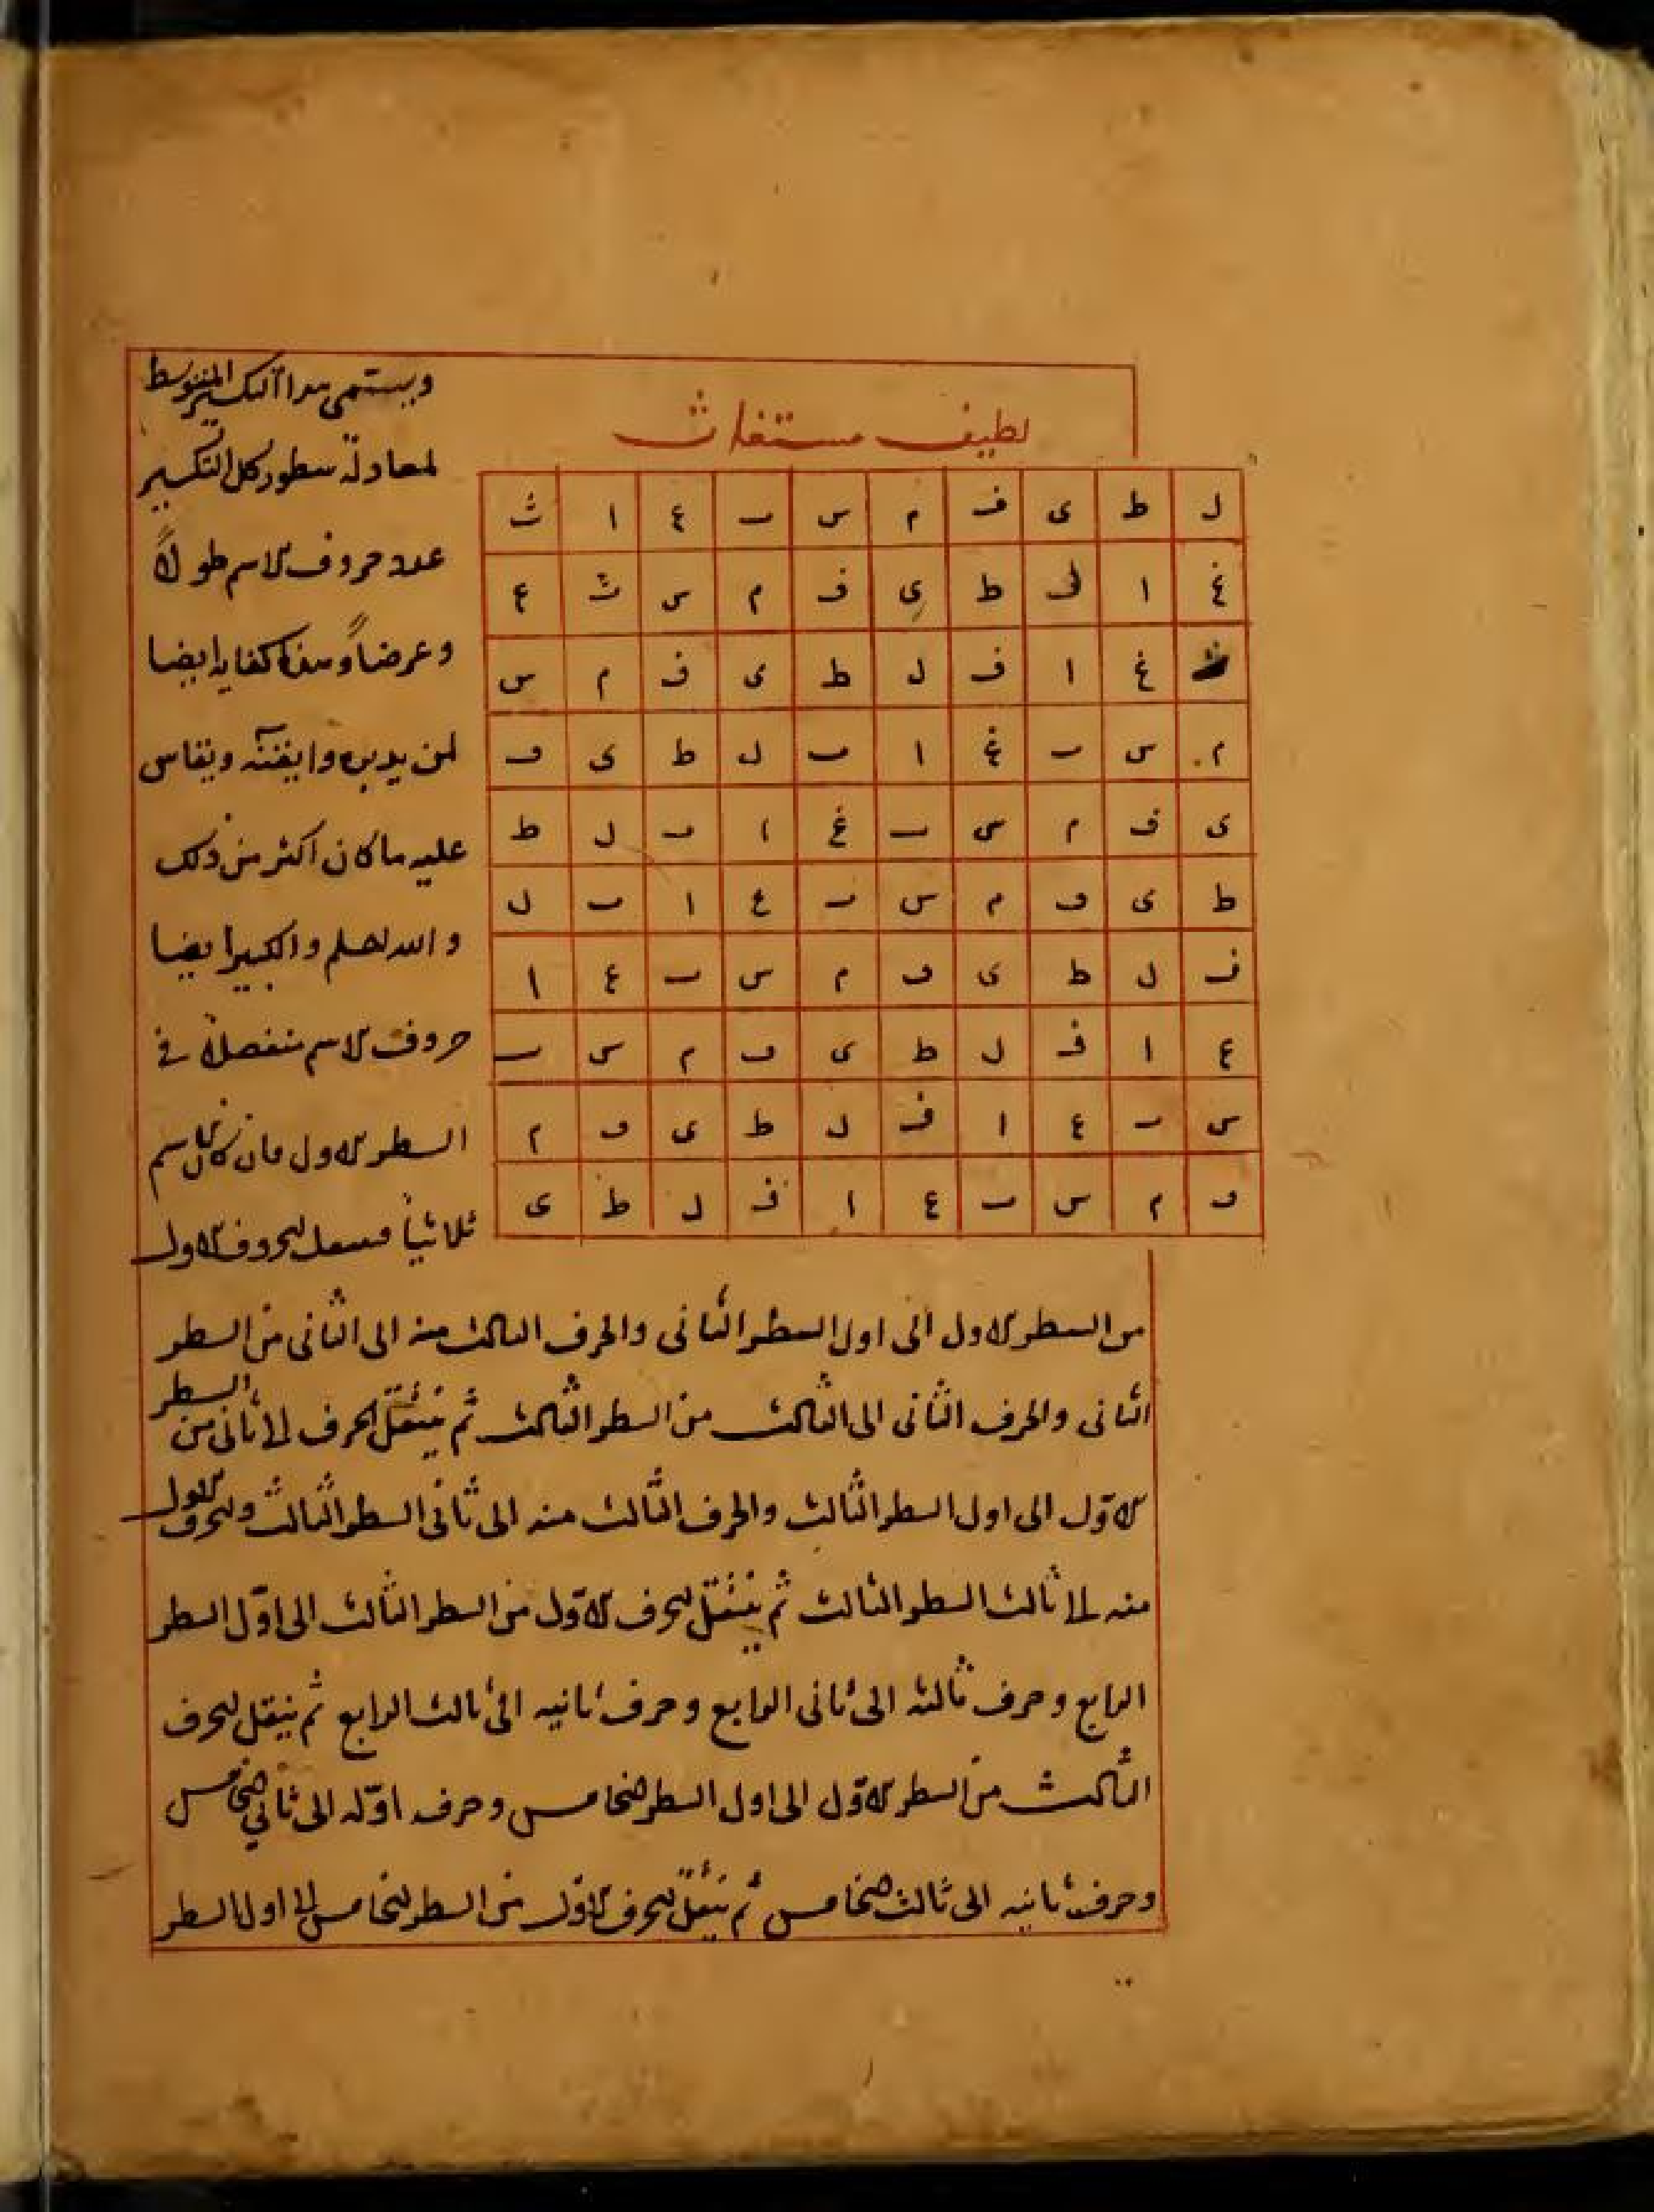 ويسمى هذا التكسير المتوسط
لطيف مستغاث
لمعادلة سطور كل التكسير
عدد حروف الاسم طولاً
وعرضاً وهذا كفاية ايضا
لمن يدبره وايقنه ويقاس
عليه ما كان اكثر من ذلك
والله اعلم والكبير ايضا
حروف الاسم منفصلة في
السطر الاول فان كان الاسم
ثلاثياً الحروف الاول
ل ط ى ف م س ـ ع ا ث
غ ا ل ط ي ف م س ث ع
ث غ ا ف ل ط ى ف م س
م س ـ غ ا ـ ل ط ى ف
ى ف م س ـ غ ا ـ ل ط
ط ى ف م س ـ ع ا ـ ل
ف ل ط ى ف م س ـ ع ا
ع ا ف ل ط ى ف م س ـ
س ـ ع ا ف ل ط ى ف م
ف م س ـ ع ا ف ل ط ى
من السطر الاول الى اول السطر الثانى والحرف الثالث منه الى الثانى من السطر
الثانى والحرف الثانى الى الثالث من السطر الثالث ثم ينتقل الحرف الثانى من السطر
الاوّل الى اول السطر الثالث والحرف الثالث منه الى ثانى السطر الثالث والحرف الاول
منه الى ثالث السطر الثالث ثم ينتقل الحرف الاوّل من السطر الثالث الى اوّل السطر
الرابع وحرف ثالثه الى ثانى الرابع وحرف ثانيه الى ثالث الرابع ثم ينقل الحرف
الثالث من السطر الاوّل الى اول السطر الخامس وحرف اوّله الى ثاني الخامس
وحرف ثانيه الى ثالث الخامس ثم ينتقل الحرف الاوّل من السطر الخامس الى اول السطر